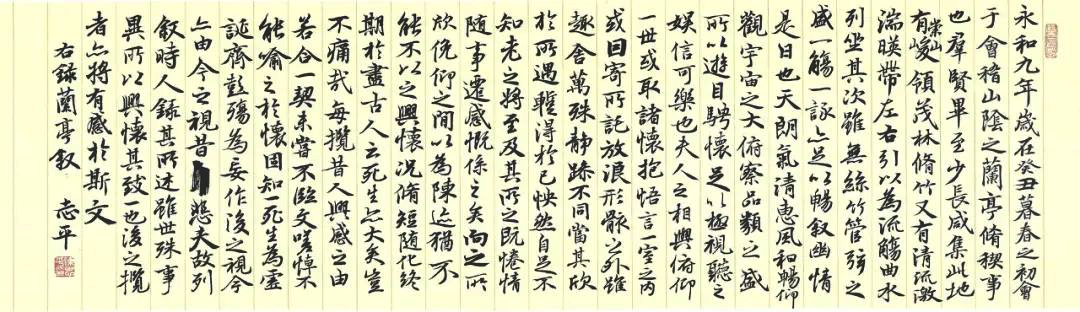 永和九年歲在癸丑暮春之初會
于會稽山陰之蘭亭脩稧事
也羣賢畢至少長咸集此地
有崇山峻領茂林脩竹又有清流激
湍暎帶左右引以為流觴曲水
列坐其次雖無絲竹管弦之
盛一觴一詠亦足以暢敘幽情
是日也天朗氣清惠風和暢仰
觀宇宙之大俯察品類之盛
所以遊目騁懷足以極視聽之
娛信可樂也夫人之相與俯仰
一世或取諸懷抱悟言一室之內
或因寄所託放浪形骸之外雖
趣舍萬殊静躁不同當其欣
於所遇蹔得於己怏然自足不
知老之將至及其所之既惓情
隨事遷感慨係之矣向之所
欣俛仰之間以為陳迹猶不
能不以之興懷況脩短隨化終
期於盡古人云死生亦大矣豈
不痛哉每攬昔人興感之由
若合一契未嘗不臨文嗟悼不
能喻之於懷固知一死生為虛
誕齊彭殤為妄作後之視今
亦由今之視昔悲夫故列
敘時人錄其所述雖世殊事
異所以興懷其致一也後之攬
者亦將有感於斯文
右錄蘭亭敘 志平